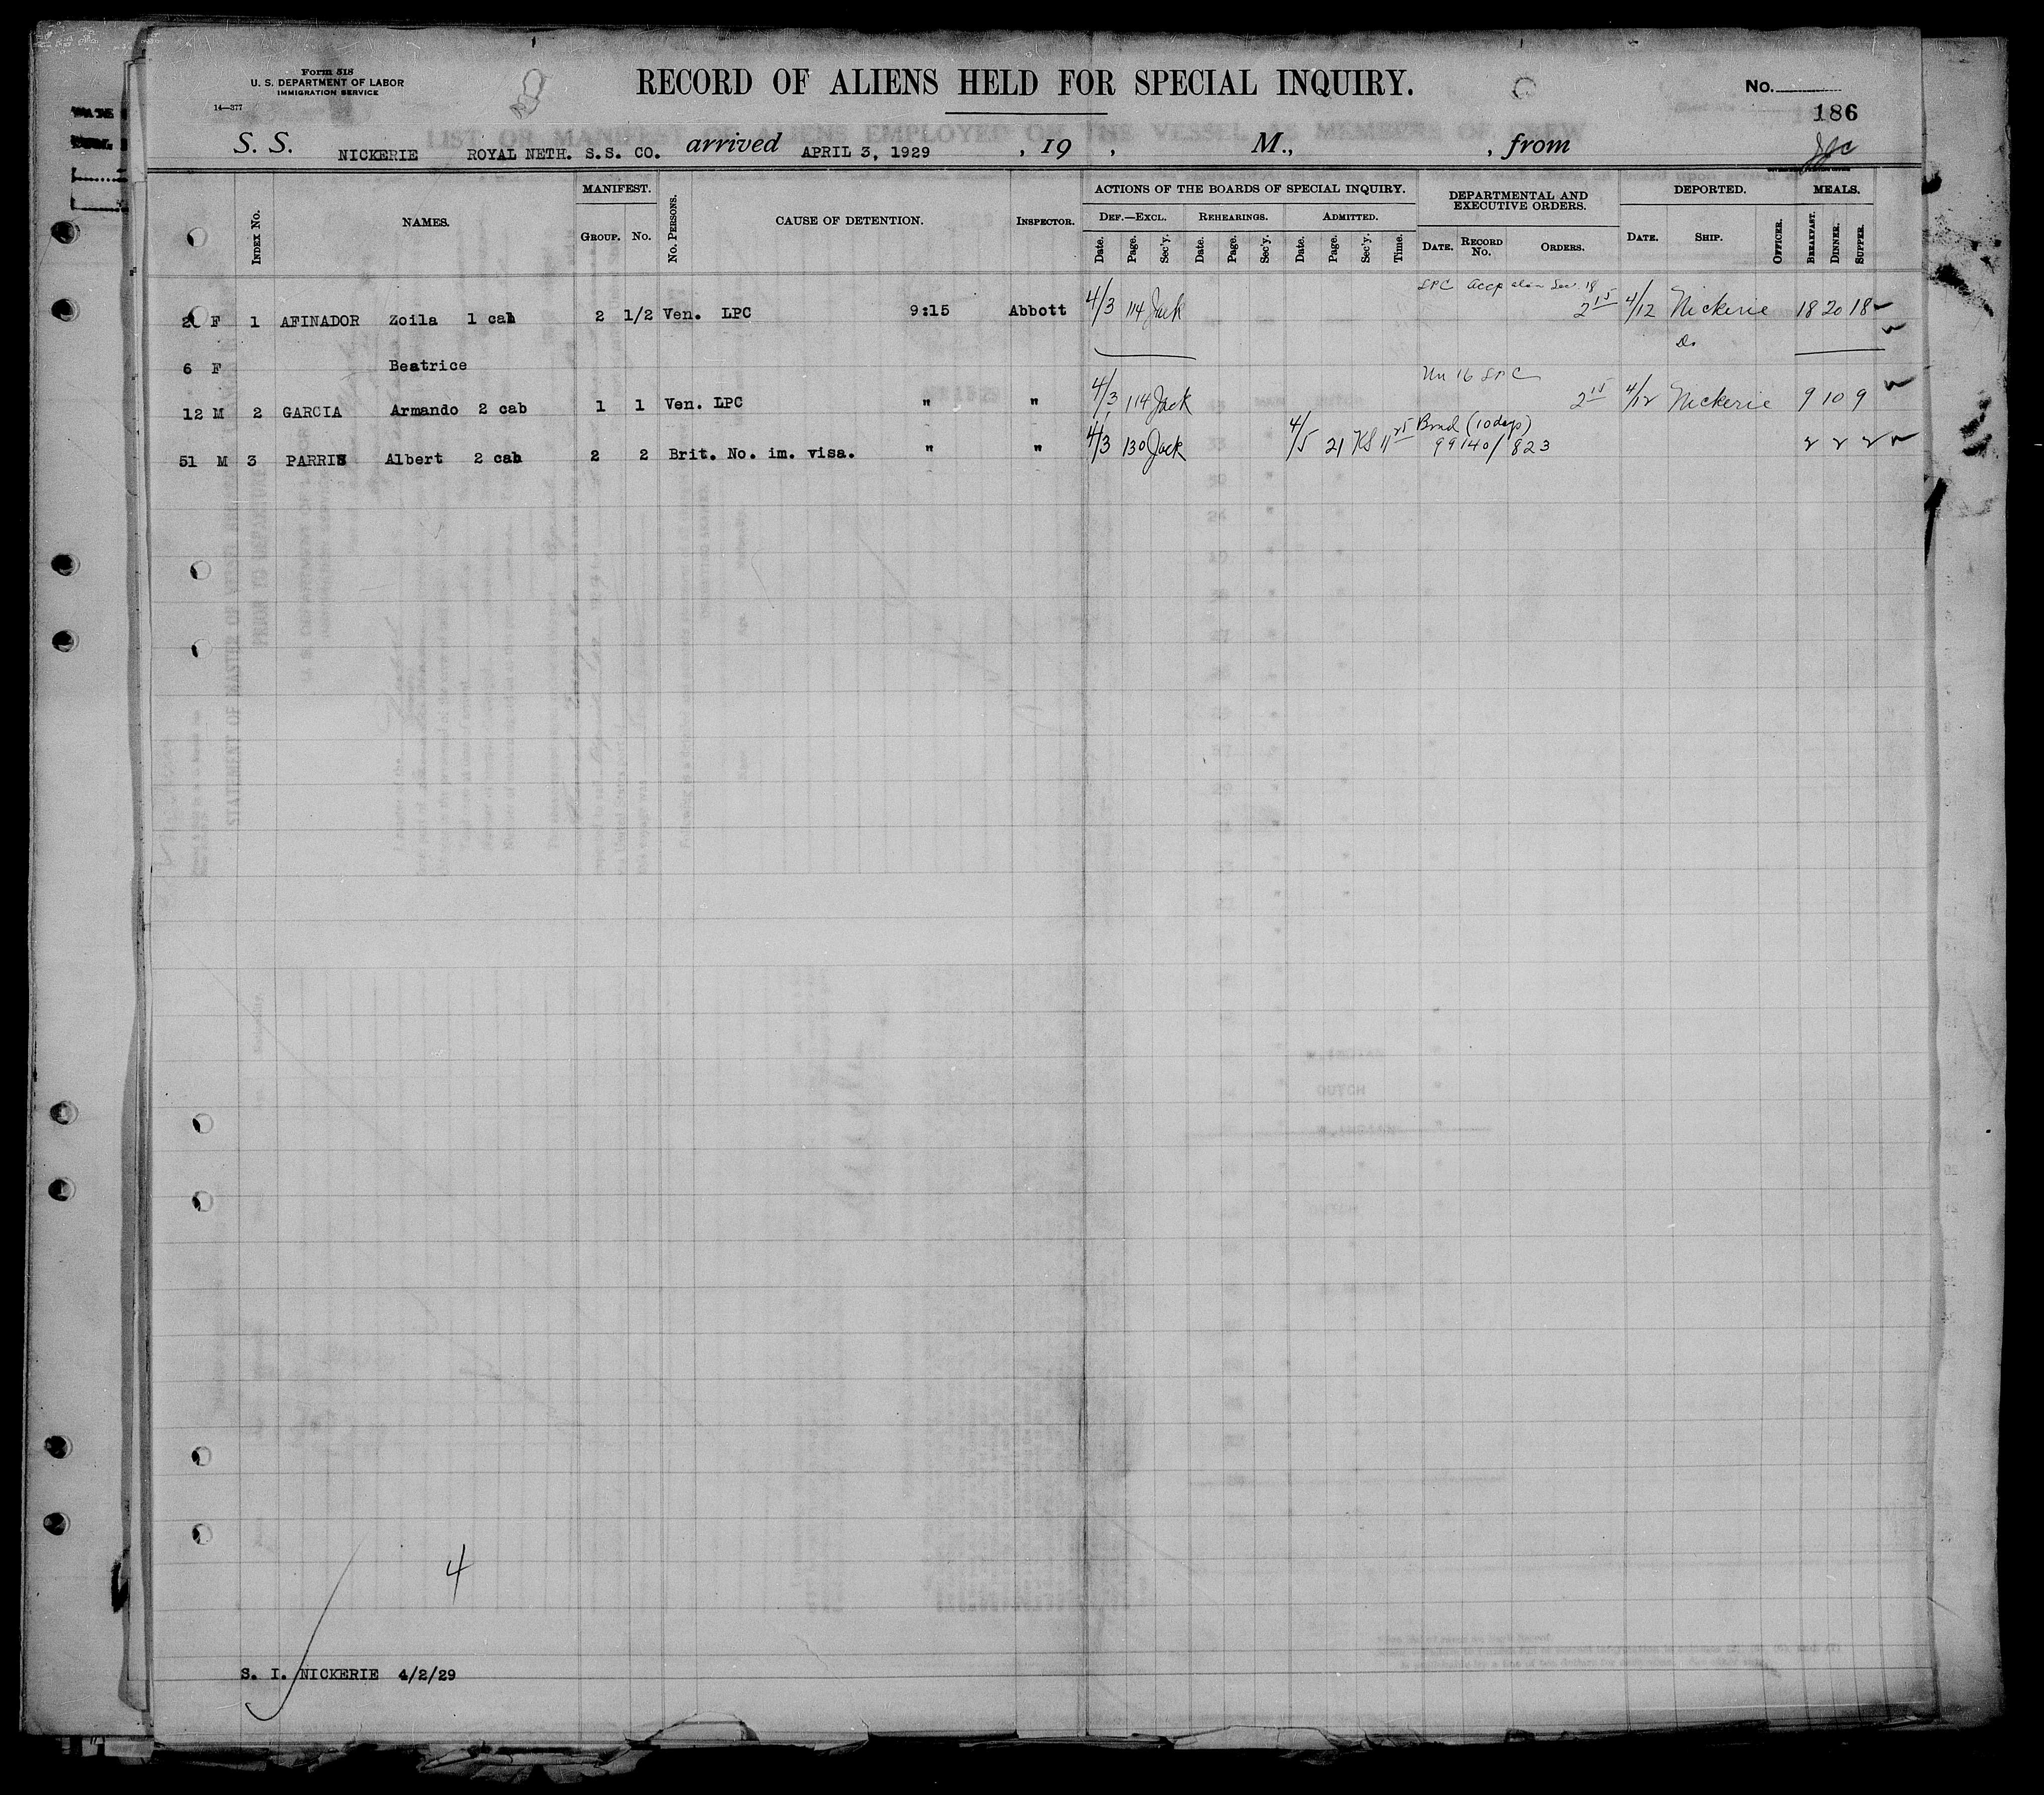 Form 518
U. S. DEPARTMENT OF LABOR
IMMIGRATION SERVICE
14—377
RECORD OF ALIENS HELD FOR SPECIAL INQUIRY.
No.
186
S. S. NICKERIE ROYAL NETH. S.S. CO. arrived APRIL 3, 1929 , 19 , M., , from
INDEX No. NAMES. MANIFEST. GROUP. No. No. PERSONS. CAUSE OF DETENTION. INSPECTOR. ACTIONS OF THE BOARDS OF SPECIAL INQUIRY. DEPARTMENTAL AND EXECUTIVE ORDERS. DEPORTED. MEALS.
DEF.—EXCL. REHEARINGS. ADMITTED.
Date. Page. Sec'y. Date. Page. Sec'y. Date. Page. Sec'y. Time. DATE. RECORD No. ORDERS. DATE. SHIP. OFFICER. BREAKFAST. DINNER. SUPPER.
LPC Accp alien Sec. 18
F 1 AFINADOR Zoila 1 cab 2 1/2 Ven. LPC 9:15 Abbott 4/3 114 Jack 2 15 4/12 Nickerie 18 20 18
Do
6 F Beatrice
Un 16 LPC
12 M 2 GARCIA Armando 2 cab 1 1 Ven. LPC " " 4/3 114 Jack 2 15 4/12 Nickerie 9 10 9
Bond (10 days)
51 M 3 PARRIS Albert 2 cab 2 2 Brit. No. im. visa. " " 4/3 130 Jack 4/5 21 KS 11 25 99140/823 2 2 2
4
S. I. NICKERIE 4/2/29